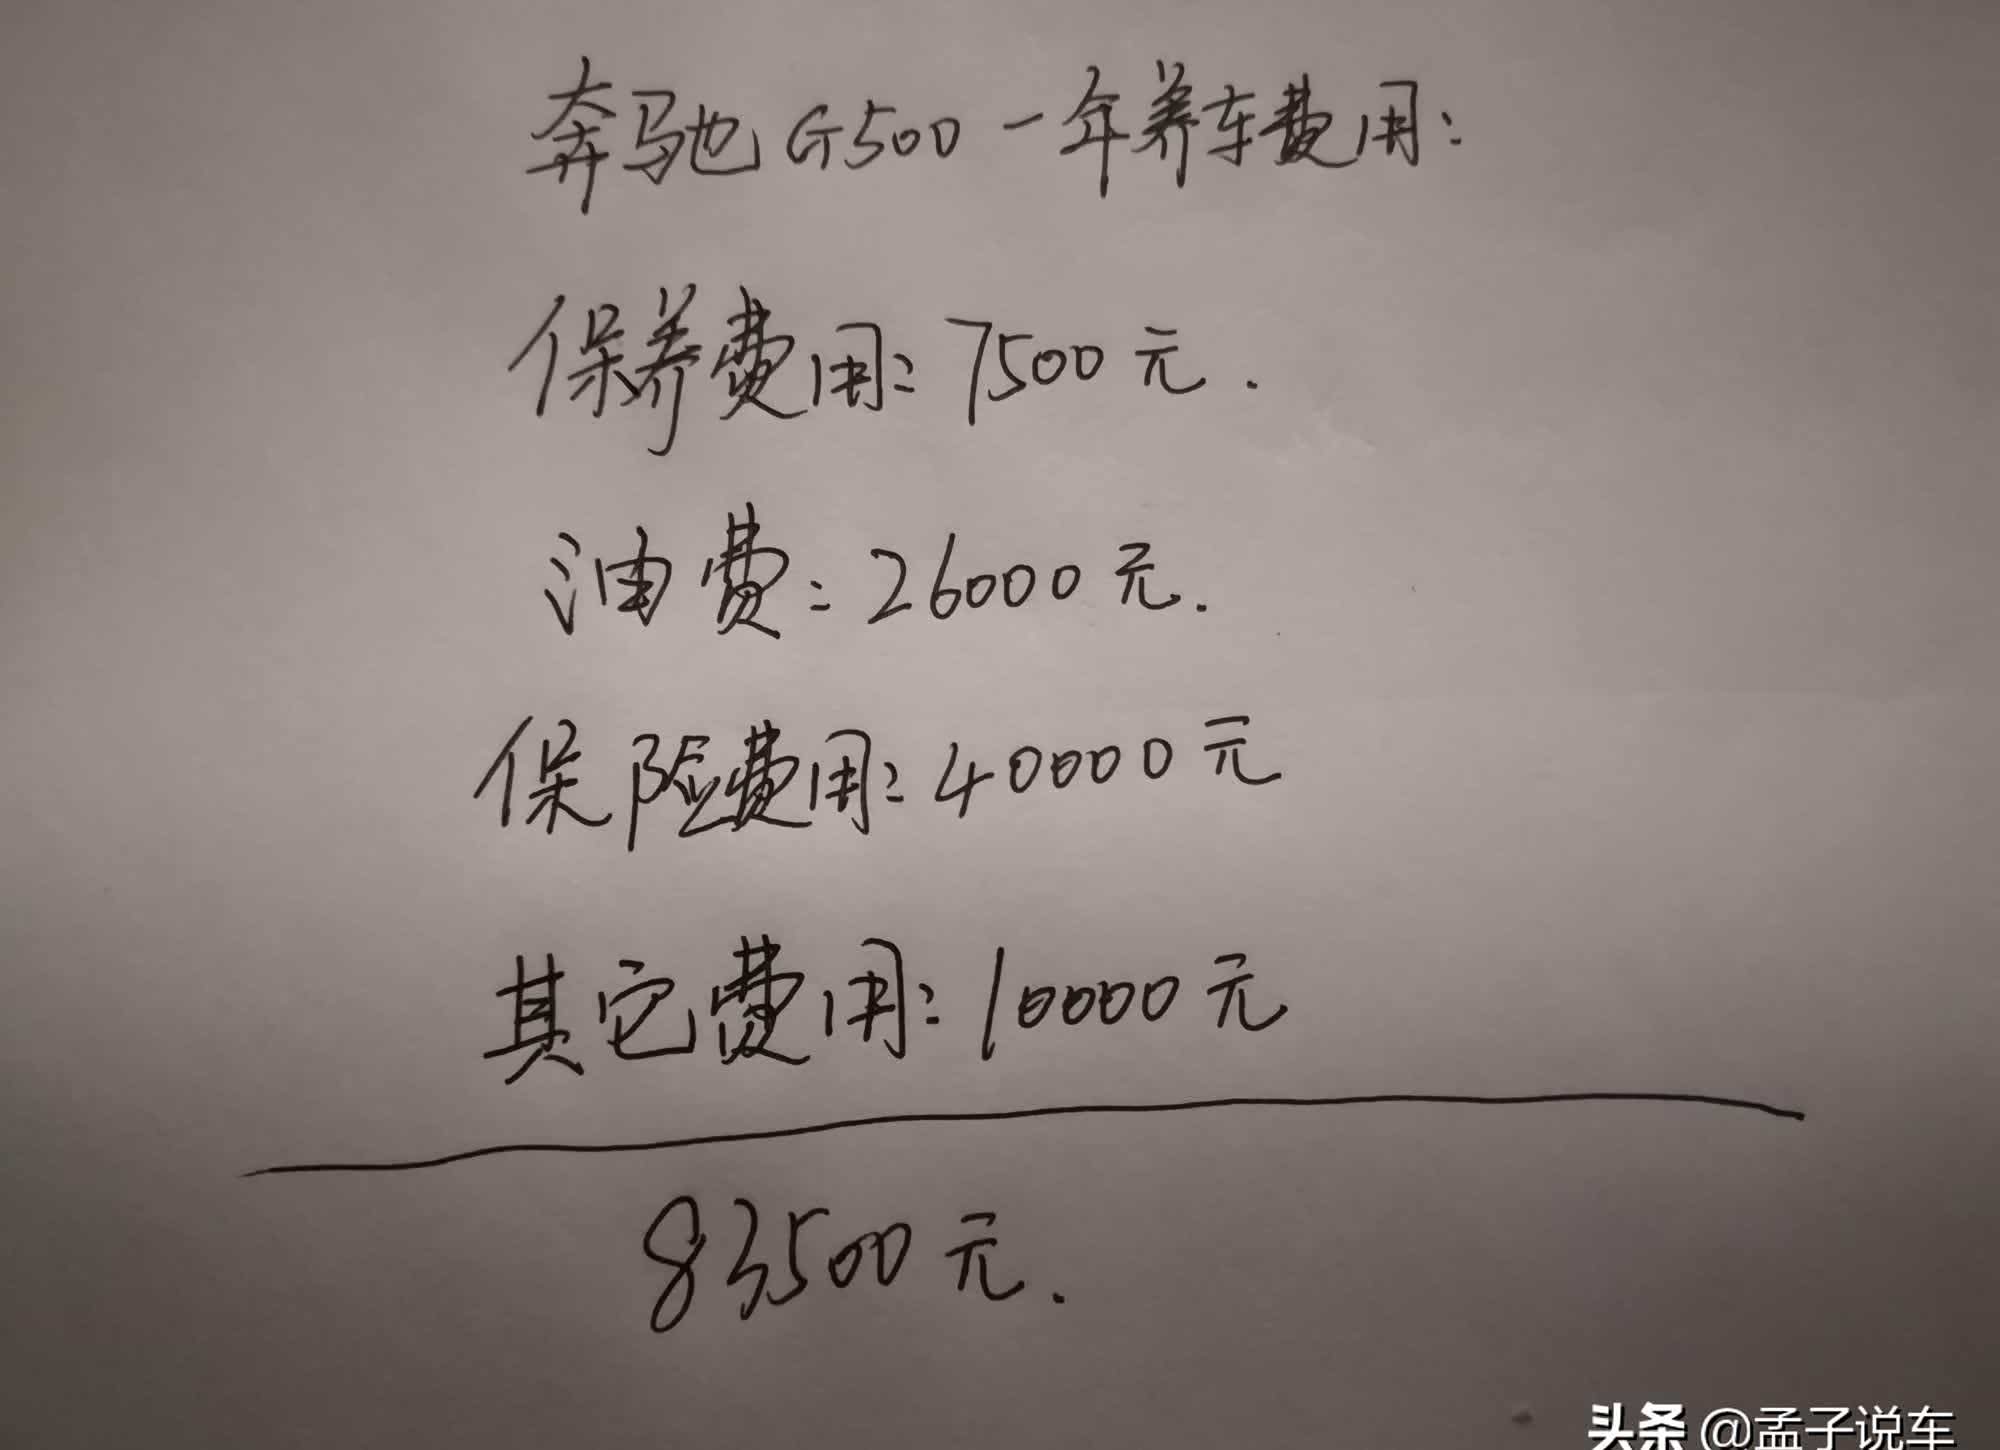 奔驰G500一年养车费用:
保养费用:7500元.
油费:26000元.
保险费用:40000元
其它费用:10000元
83500元.
头条 @孟子说车